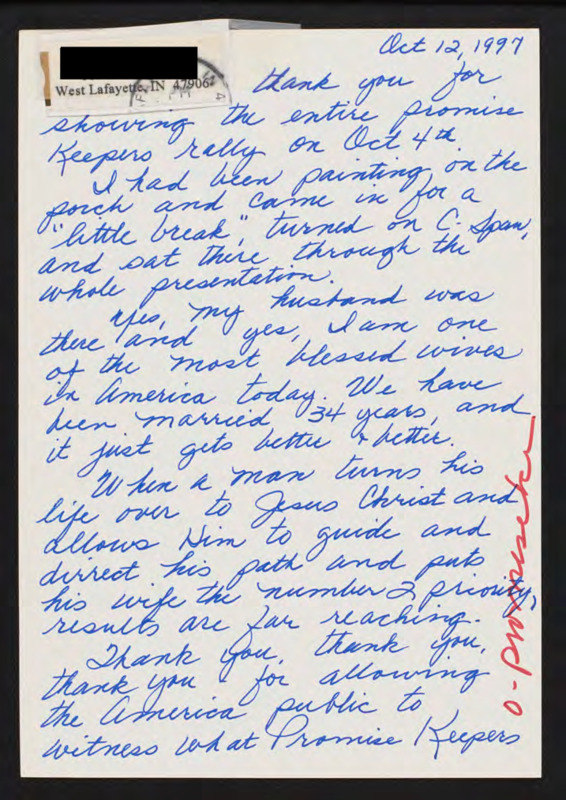 Oct 12, 1997
West Lafayette, IN 47906
thank you for
showing the entire promise
Keepers rally on Oct 4th.
I had been painting on the
porch and came in for a
"little break", turned on C. Span,
and sat there through the
whole presentation.
Yes, my husband was
there and yes, I am one
of the most blessed wives
in America today. We have
been married 34 years, and
it just gets better & better.
When a man turns his
life over to Jesus Christ and
allows Him to guide and
dirrect his path and puts
his wife the number 2 priority,
results are far reaching.
Thank you, thank you,
thank you for allowing
the America public to
witness what Promise Keepers